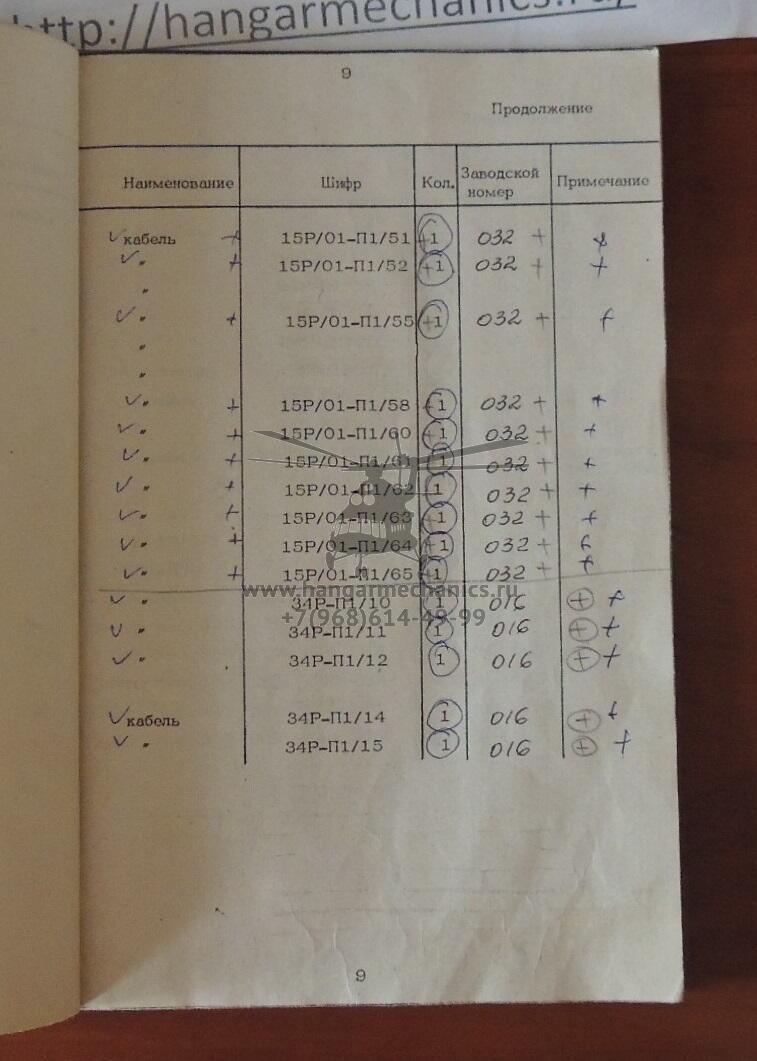 http://hangarmechanics.ru/
9
Продолжение
Наименование Шифр Кол. Заводской номер Примечание
✓ кабель + 15Р/01-П1/51 +1 032 + +
✓ " + 15Р/01-П1/52 +1 032 + +
"
✓ " + 15Р/01-П1/55 +1 032 + +
"
"
✓ " + 15Р/01-П1/58 +1 032 + +
✓ " + 15Р/01-П1/60 +1 032 + +
✓ " + 15Р/01-П1/61 1 032 + +
✓ " + 15Р/01-П1/62 1 032 + +
✓ " + 15Р/01-П1/63 +1 032 + +
✓ " + 15Р/01-П1/64 +1 032 + +
✓ " + 15Р/01-П1/65 +1 032 + +
www.hangarmechanics.ru
✓ " 34Р-П1/10 1 016 + +
+7(968)614-49-99
✓ " 34Р-П1/11 1 016 + +
✓ " 34Р-П1/12 1 016 + +
✓ кабель 34Р-П1/14 1 016 + +
✓ " 34Р-П1/15 1 016 + +
9